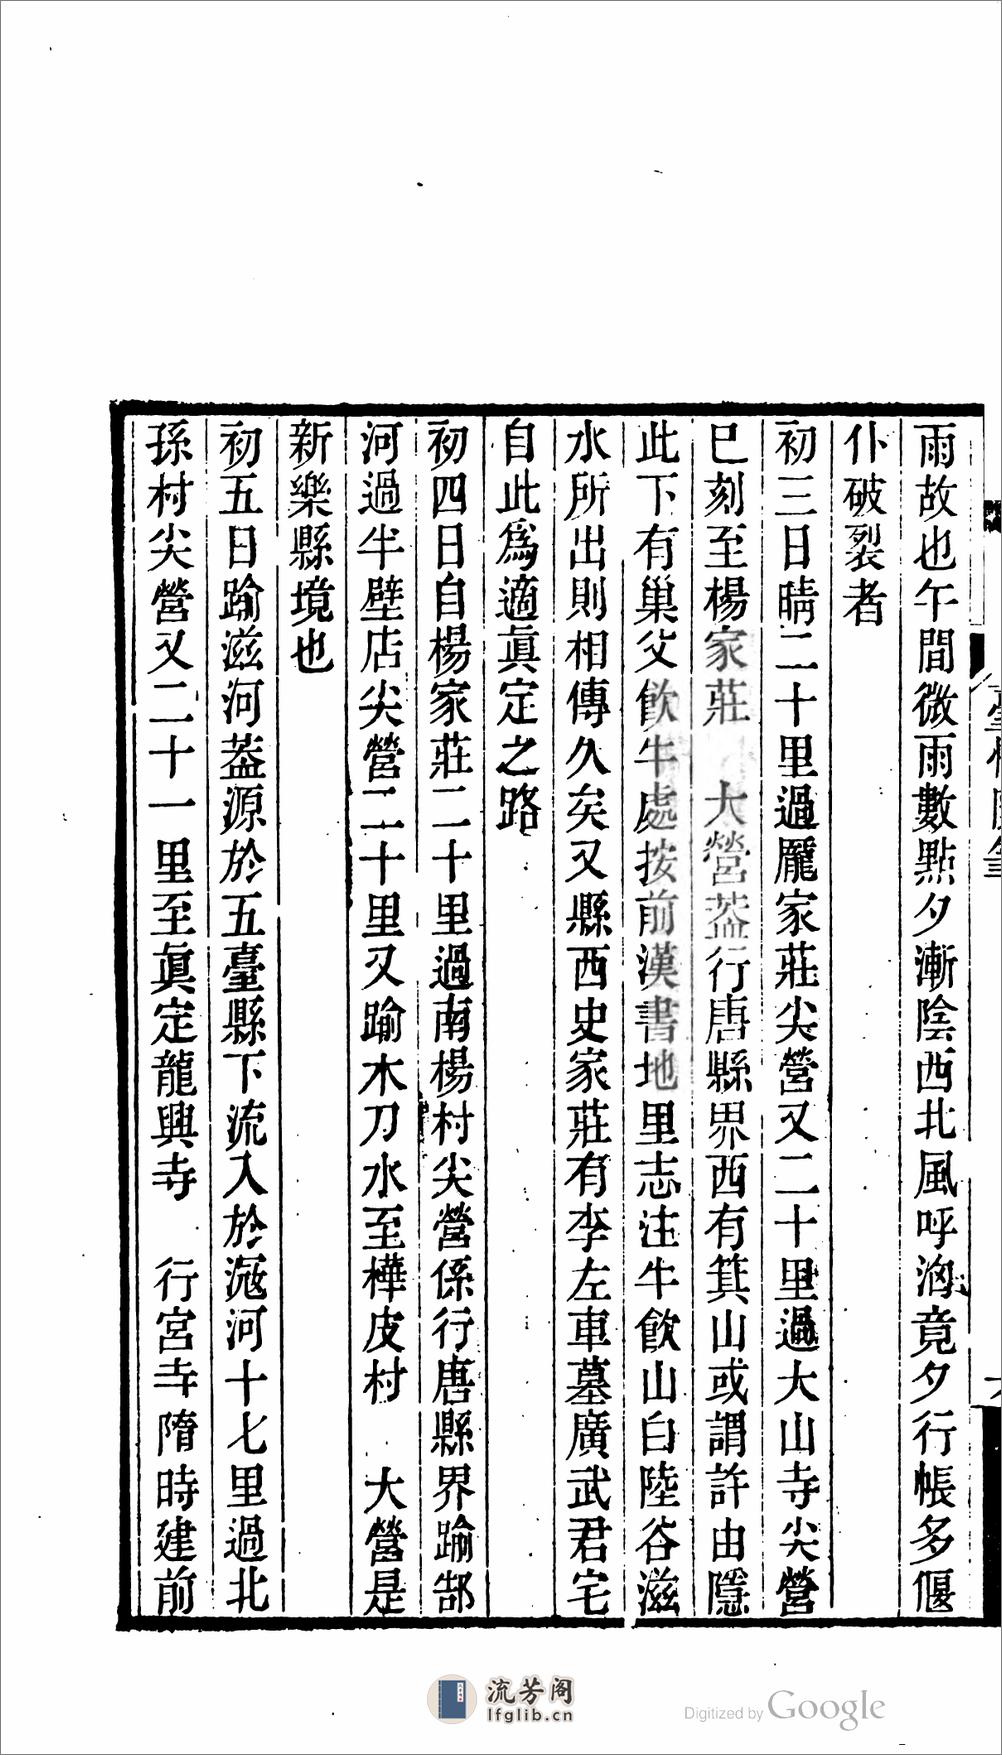 雨故也午間微雨數點夕漸陰西北風呼洶竟夕行帳多偃
仆破裂者
初三日晴二十里過龎家莊尖營又二十里過大山寺尖營
巳刻至楊家莊 大營葢行唐縣界西有箕山或謂許由隱
此下有巢父飮牛處按前漢書地里志注牛飮山白陸谷滋
水所出則相傳久矣又縣西史家莊有李左車墓廣武君宅
自此爲適眞定之路
初四日自楊家莊二十里過南楊村尖營係行唐縣界踰郜
河過半壁店尖營二十里又踰木刀水至樺皮村 大營是
新樂縣境也
初五日踰滋河葢源於五臺縣下流入於滱河十七里過北
孫村尖營又二十一里至眞定龍興寺 行宮寺隋時建前
流芳阁
lfglib.cn
Digitized by Google